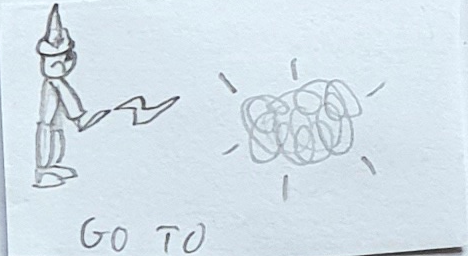 GO TO